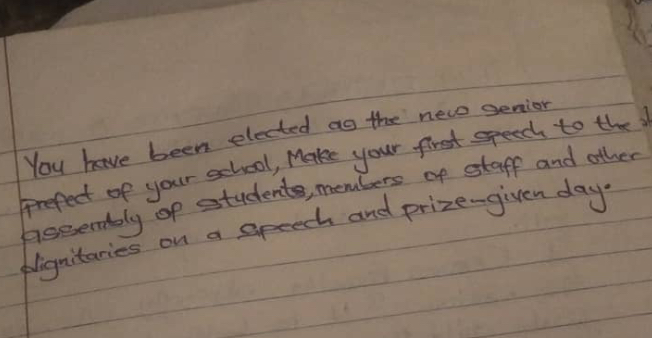 You have been elected as the new senior
prefect of your school, Make your first speech to the
assembly of students, members of staff and other
dignitaries on a speech and prize-given day.